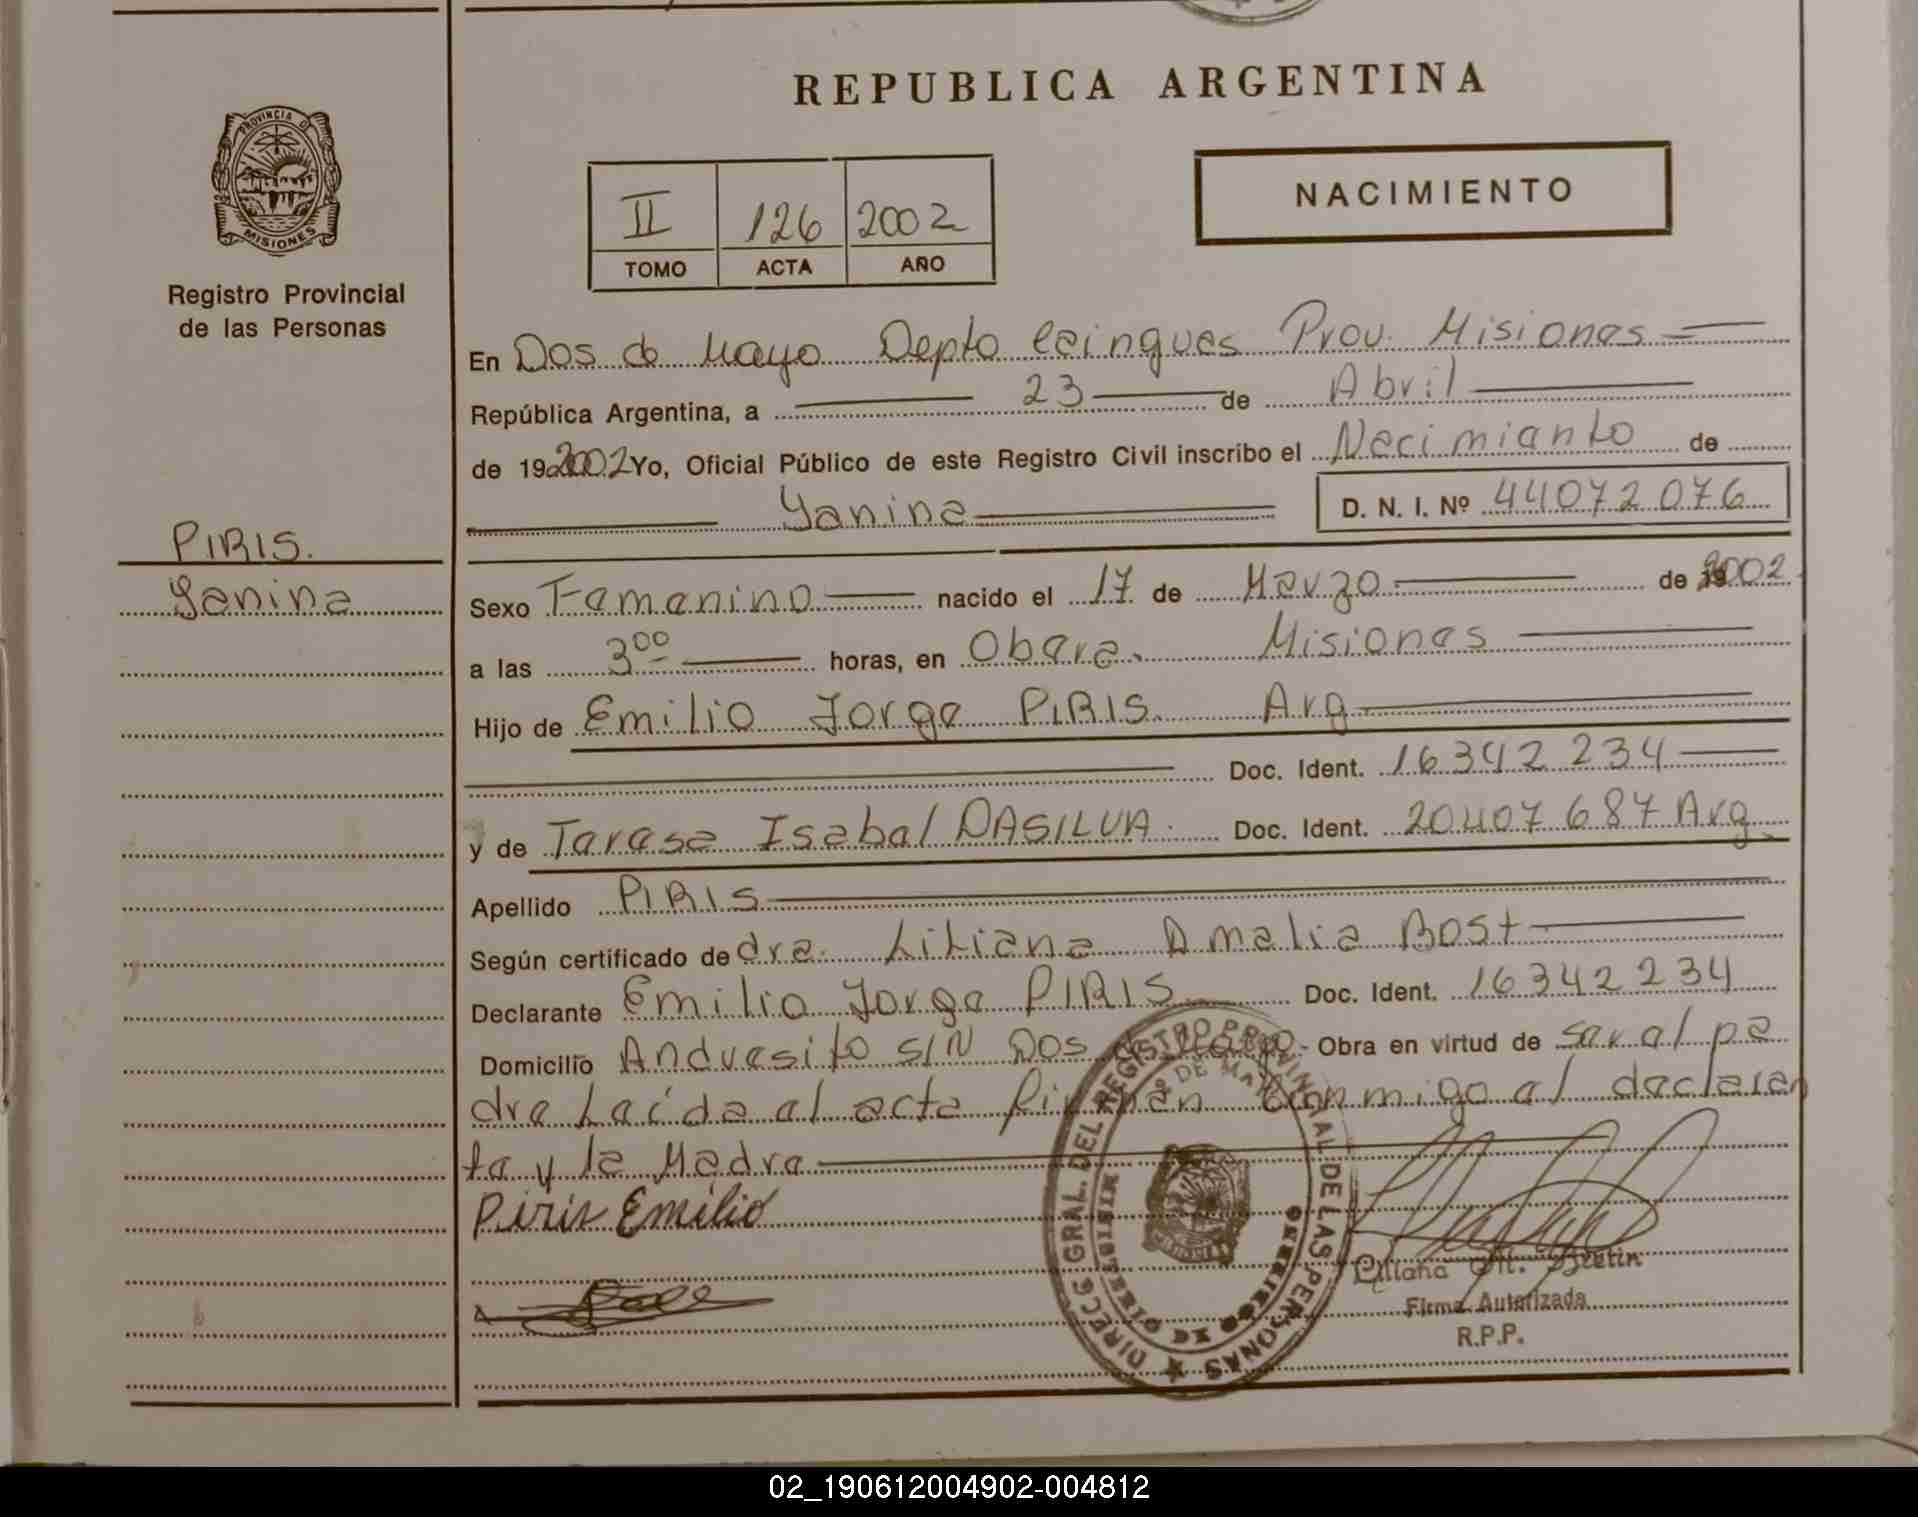 REPUBLICA ARGENTINA
PROVINCIA D
MISIONES
Registro Provincial
de las Personas
II 126 2002
TOMO ACTA AÑO
NACIMIENTO
En Dos de Mayo Depto Cainguas Prov. Misiones
República Argentina, a 23 de Abril
de 19 2002 Yo, Oficial Público de este Registro Civil inscribo el Nacimiento de
Yanina D. N. I. Nº 44072076
PIRIS.
Yanina
Sexo Femenino nacido el 17 de Marzo de 2002
a las 3 00 horas, en Obera. Misiones
Hijo de Emilio Jorge PIRIS. Arg
Doc. Ident. 16342234
y de Teresa Isabel DASILVA. Doc. Ident. 20407687 Arg.
Apellido PIRIS
Según certificado de dra. Liliana Amalia Bost
Declarante Emilio Jorge PIRIS Doc. Ident. 16342234
Domicilio Andresito S/N Dos de Mayo - Obra en virtud de ser el pa
dre Leída el acta firman conmigo el declaran
te y la Madre
Piris Emilio
DIRECC GRAL. DEL REGISTRO PROVINCIAL DE LAS PERSONAS
DE MAYO
MISIONES
Firma Autorizada
R.P.P.
02_190612004902-004812